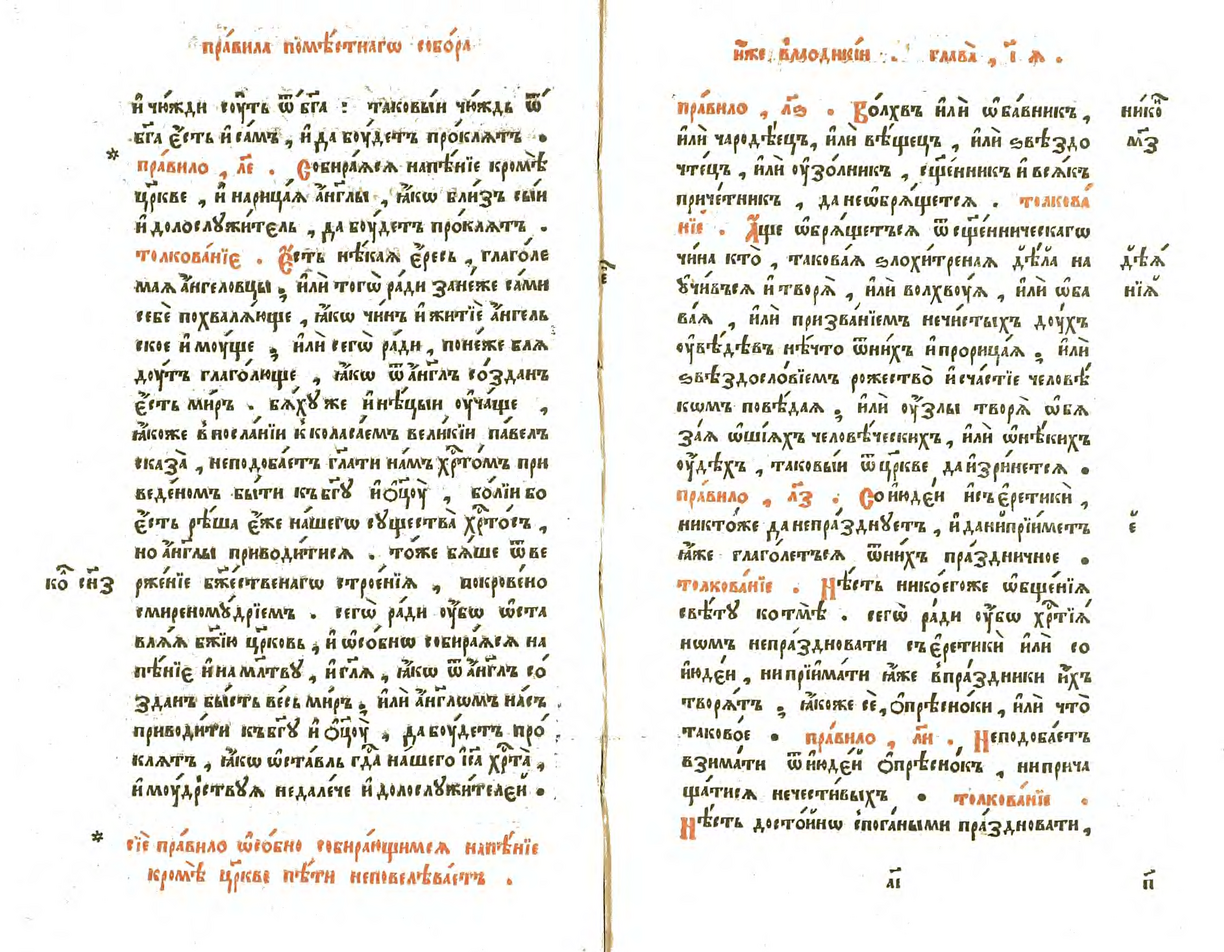 пра́вила помѣ́стнагѡ собо́ра
и҆ чю́жди сꙋ́ть ѿ бг҃а : таковы́и чю́ждь ѿ
бг҃а є҆́сть и҆ са́мъ , и҆ да бꙋ́детъ про́клѧтъ .
* пра́вило , л҃е . Собира́ѧсѧ на пѣ́нїе кромѣ̀
цр҃кве , и҆ нарица́ѧ а҆́нг҃лы , ꙗ҆́кѡ бли́зъ сы́и
и҆долослꙋжи́тель , да бꙋ́детъ про́клѧтъ .
толкова́нїе . Є҆́сть нѣ́каѧ є҆́ресь , глаго́ле
маѧ а҆́нгеловцы , и҆лѝ тогѡ̀ ра́ди зане́же са́ми
себѐ похвалѧ́юще , ꙗ҆́кѡ чи́нъ и҆ житїѐ а҆́нгель
ское и҆мꙋ́ще , и҆лѝ сегѡ̀ ра́ди , поне́же блѧ
дꙋ́тъ глаго́люще , ꙗ҆́кѡ ѿ а҆́нг҃лъ со́зданъ
є҆́сть ми́ръ . бѧ́хꙋ же и҆ нѣ́цыи ᲂу҆ча́ще ,
ꙗ҆́коже в посла́нїи к коласа́емъ вели́кїи па́велъ
сказа̀ , не подоба́етъ гл҃ати на́мъ хр҃то́мъ при
веде́номъ бы́ти къ бг҃ꙋ и҆ ѻ҆ц҃ꙋ̀ , бо́лїи бо
є҆́сть рѣ́ша є҆́же на́шегѡ сꙋщества̀ хр҃то́съ ,
но а҆́нг҃лы приводи́тисѧ . то́же бѧ́ше ѿве
ко҃ сн҃з рже́нїе бж҃е́ственагѡ строе́нїѧ , покрове́но
смиреномꙋ́дрїемъ . сегѡ̀ ра́ди ᲂу҆́бѡ ѡ҆ста
влѧ́ѧ бж҃їю цр҃ковь , и҆ ѡ҆со́бнѡ собира́ѧсѧ на
пѣ́нїе и҆ на мл҃твꙋ , и҆ гл҃ѧ , ꙗ҆́кѡ ѿ а҆́нг҃лъ со́
зданъ бы́сть ве́сь ми́ръ , и҆лѝ а҆́нг҃лѡмъ на́съ
приводи́ти къ бг҃ꙋ и҆ ѻ҆ц҃ꙋ̀ , да бꙋ́детъ про́
клѧтъ , ꙗ҆́кѡ ѡ҆ста́вль гд҃а на́шего і҆с҃а хр҃та̀ ,
и҆ мꙋ́дрствꙋѧ недале́че и҆долослꙋжи́телей .
* сїѐ пра́вило ѡ҆со́бно собира́ющимсѧ на пѣ́нїе
кромѣ̀ цр҃кве пѣ́ти не повелѣва́етъ .
и҆́же в лаѡдикі́и . глава̀ , і҃ ѧ .
пра́вило , л҃ѕ . Волхвъ и҆лѝ ѡ҆ба́вникъ , нико҃
и҆лѝ чародѣ́ецъ , и҆лѝ вѣ́щецъ , и҆лѝ ѕвѣздо м҃з
чте́цъ , и҆лѝ ᲂу҆зо́лникъ , сщ҃е́нникъ и҆ всѧ́къ
приче́тникъ , да не ѡ҆брѧ́щетсѧ . толкова́
нїе . А҆́ще ѡ҆брѧ́щетъсѧ ѿ сщ҃е́нническагѡ
чи́на кто̀ , такова́ѧ ѕлохи́тренаѧ дѣ́ла на дѣѧ́
ᲂу҆чи́всѧ и҆ творѧ̀ , и҆лѝ волхвꙋ́ѧ , и҆лѝ ѡ҆ба нїѧ̀
ва́ѧ , и҆лѝ призва́нїемъ нечи́стыхъ дꙋ́хъ
ᲂу҆вѣ́дѣвъ нѣ́что ѿ ни́хъ и҆ прорица́ѧ , и҆лѝ
ѕвѣздосло́вїемъ рожество̀ и҆ сча́стїе человѣ́
кѡмъ повѣ́даѧ , и҆лѝ ᲂу҆́злы творѧ̀ ѡ҆бѧ
за́ѧ ѡ҆ шїѧ́хъ человѣ́ческихъ , и҆лѝ ѡ҆ нѣ́кихъ
ᲂу҆дѣ́хъ , таковы́и ѿ цр҃кве да и҆зри́нетсѧ .
пра́вило , л҃з . Со і҆юде́и и҆ съ є҆ретикѝ ,
никто́же да не пра́зднꙋетъ , и҆ да ни прїи́метъ є҃
ꙗ҆́же глаго́летъсѧ ѿ ни́хъ пра́здничное .
толкова́нїе . Нѣ́сть никое́гоже ѡ҆бще́нїѧ
свѣ́тꙋ ко тмѣ̀ . сегѡ̀ ра́ди ᲂу҆́бѡ хр҃тїѧ́
нѡмъ не пра́здновати съ є҆ретикѝ и҆лѝ со
і҆юде́и , ни прїима́ти ꙗ҆́же в пра́здники и҆́хъ
творѧ́тъ , ꙗ҆́коже сѐ , ѻ҆прѣсно́ки , и҆лѝ что̀
таково́е . пра́вило , л҃и . Не подоба́етъ
взима́ти ѿ і҆юде́й ѻ҆прѣсно́къ , ни прича
ща́тисѧ нечести́выхъ . толкова́нїе .
Нѣ́сть досто́йнѡ с пога́ными пра́здновати ,
а҃і п҃